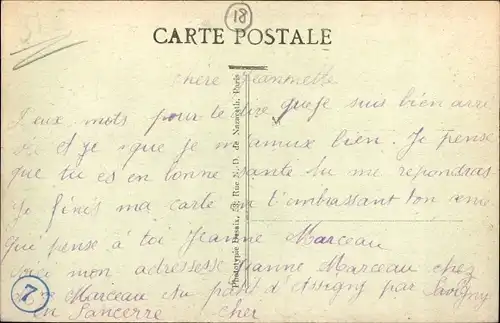 18
CARTE POSTALE
chère Jeannette
Deux mots pour te dire que je suis bien arri
vé et je que je m'amux bien. Je pense
que tu es en bonne santé tu me répondras
Je finis ma carte en t'embrassant ton
Qui pense à toi Jeanne Marceau
voici mon adressesse Jeanne Marceau chez
Marceau Au pont d'Assigny par Savigny
en Sancerre Cher
7
Phototypie Desaix, Rue N. D. de Nazareth, Paris